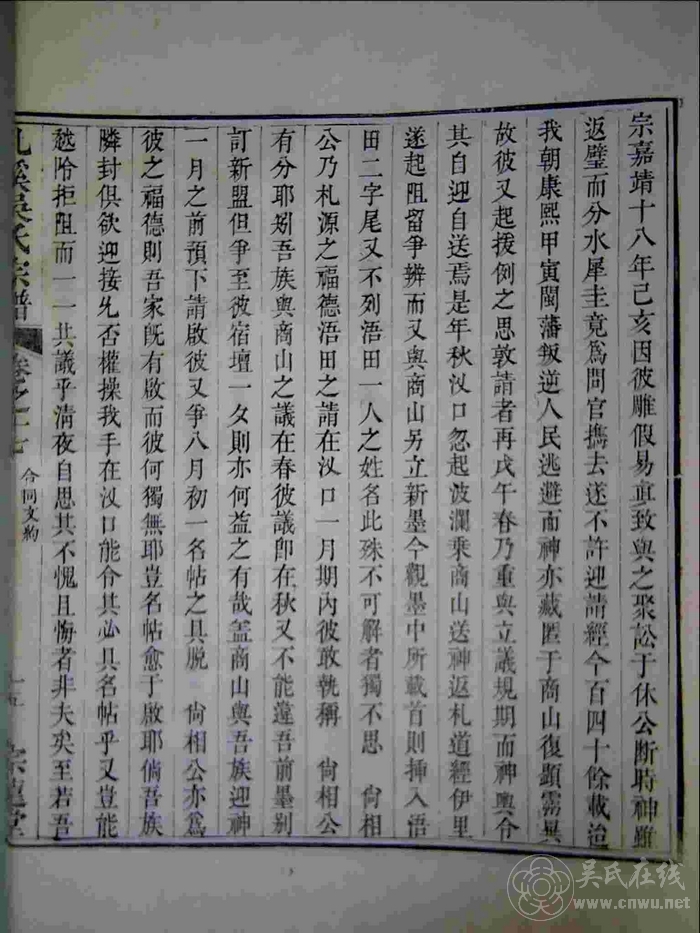 宗嘉靖十八年己亥因彼雕假易真致與之聚訟于休公斷時神雖
返璧而分水犀圭竟為問官攜去遂不許迎請經今百四十餘載迨
我朝康熙甲寅閩藩叛逆人民逃避而神亦藏匿于商山復顯靈異
故彼又起援例之思敦請者再戊午春乃重與立議規期而神輿令
其自迎自送焉是年秋汊口忽起波瀾乘商山送神返札道經伊里
遂起阻留爭辨而又與商山另立新墨今觀墨中所載首則挿入浯
田二字尾又不列浯田一人之姓名此殊不可解者獨不思 尙相
公乃札源之福德浯田之請在汊口一月期內彼敢執稱 尙相公
有分耶矧吾族與商山之議在春彼議卽在秋又不能違吾前墨別
訂新盟但爭至彼宿壇一夕則亦何益之有哉葢商山與吾族迎神
一月之前預下請啟彼又爭八月初一名帖之具脫 尙相公亦為
彼之福德則吾家旣有啟而彼何獨無耶豈名帖愈于啟耶倘吾族
隣封俱欲迎接允否權操我手在汊口能令其必具名帖乎又豈能
越阾拒阻而一一共議乎清夜自思其不愧且悔者非夫矣至若吾
溪吳氏宗譜
合同文約
吴氏在线
www.cnwu.net